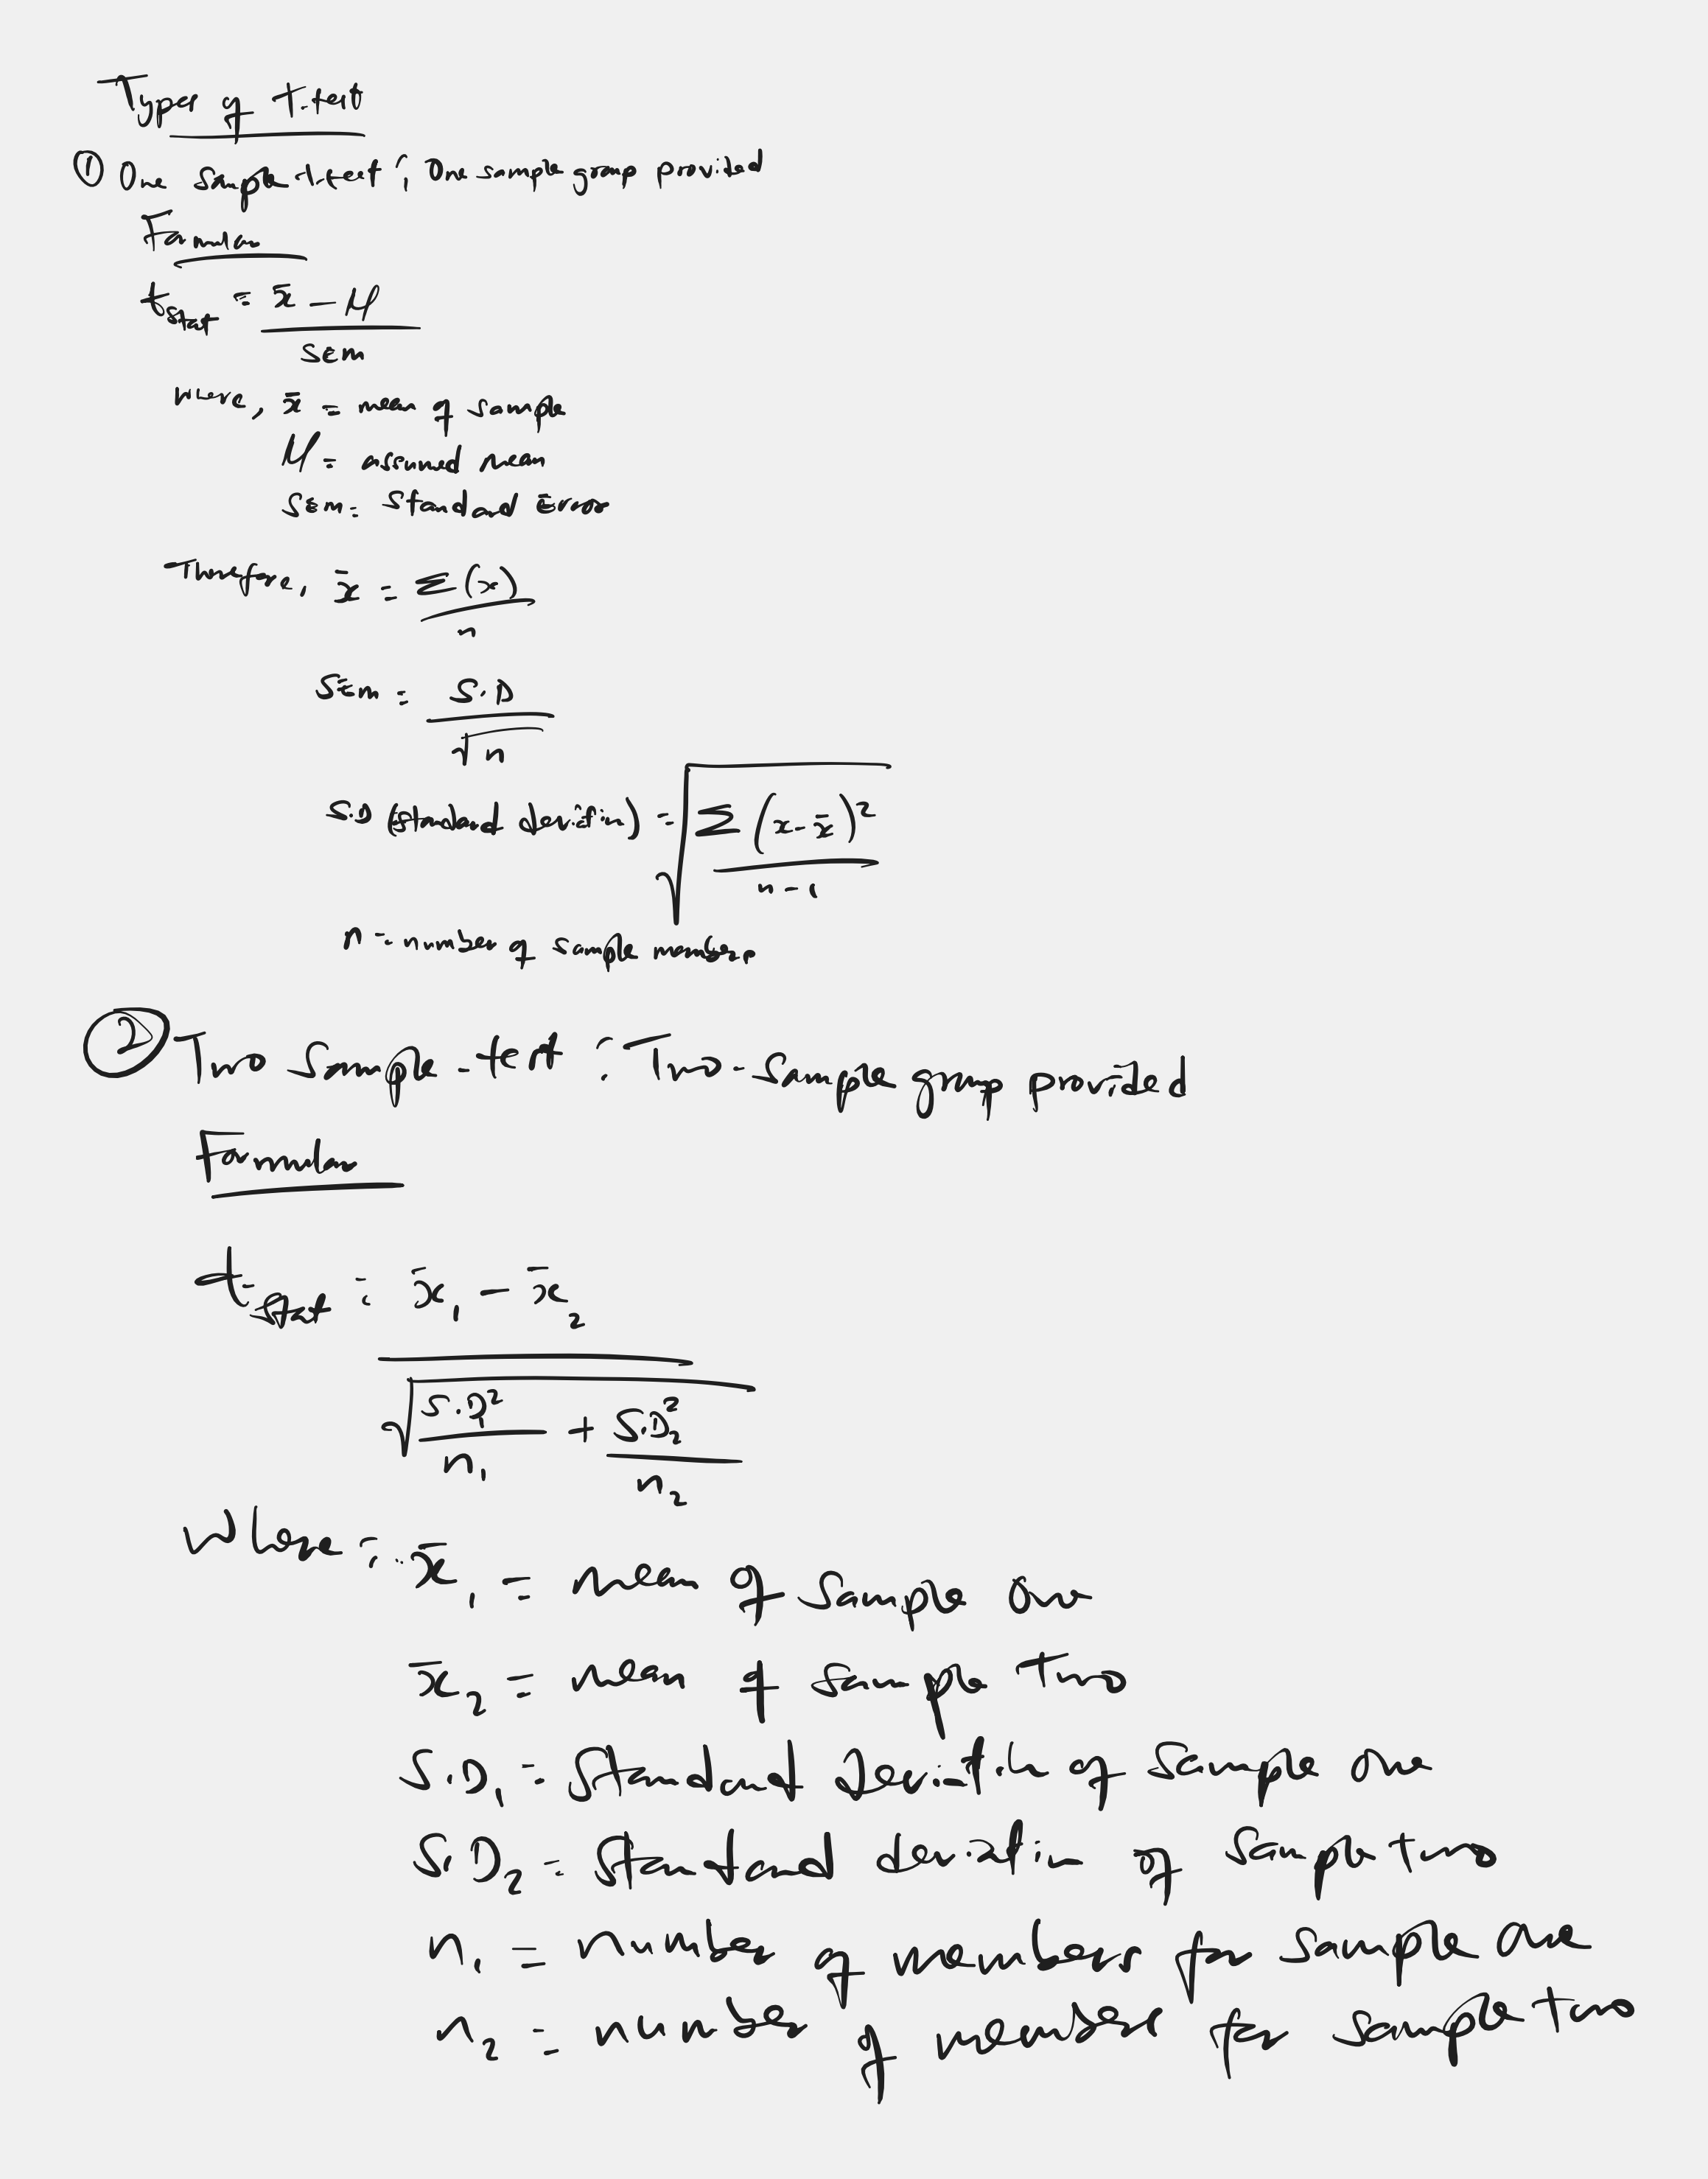 Types of T-test
① One sample t-test : One sample group provided
Formular
t stat = x̄ - μ
SEm
where, x̄ = mean of sample
μ = assumed mean
SEm = Standard Error
Therefore, x̄ = Σ(x)
n
SEm = S.D
√n
S.D (standard deviation) = √ Σ (x - x̄)²
n - 1
n = number of sample members
② Two Sample - test : Two - sample group provided
Formular
t-stat = x̄₁ - x̄₂
√ S.D₁² + S.D₂²
n₁ n₂
Where : x̄₁ = mean of sample one
x̄₂ = mean of sample two
S.D₁ = Standard Deviation of sample one
S.D₂ = Standard deviation of sample two
n₁ = number of members for sample one
n₂ = number of members for sample two